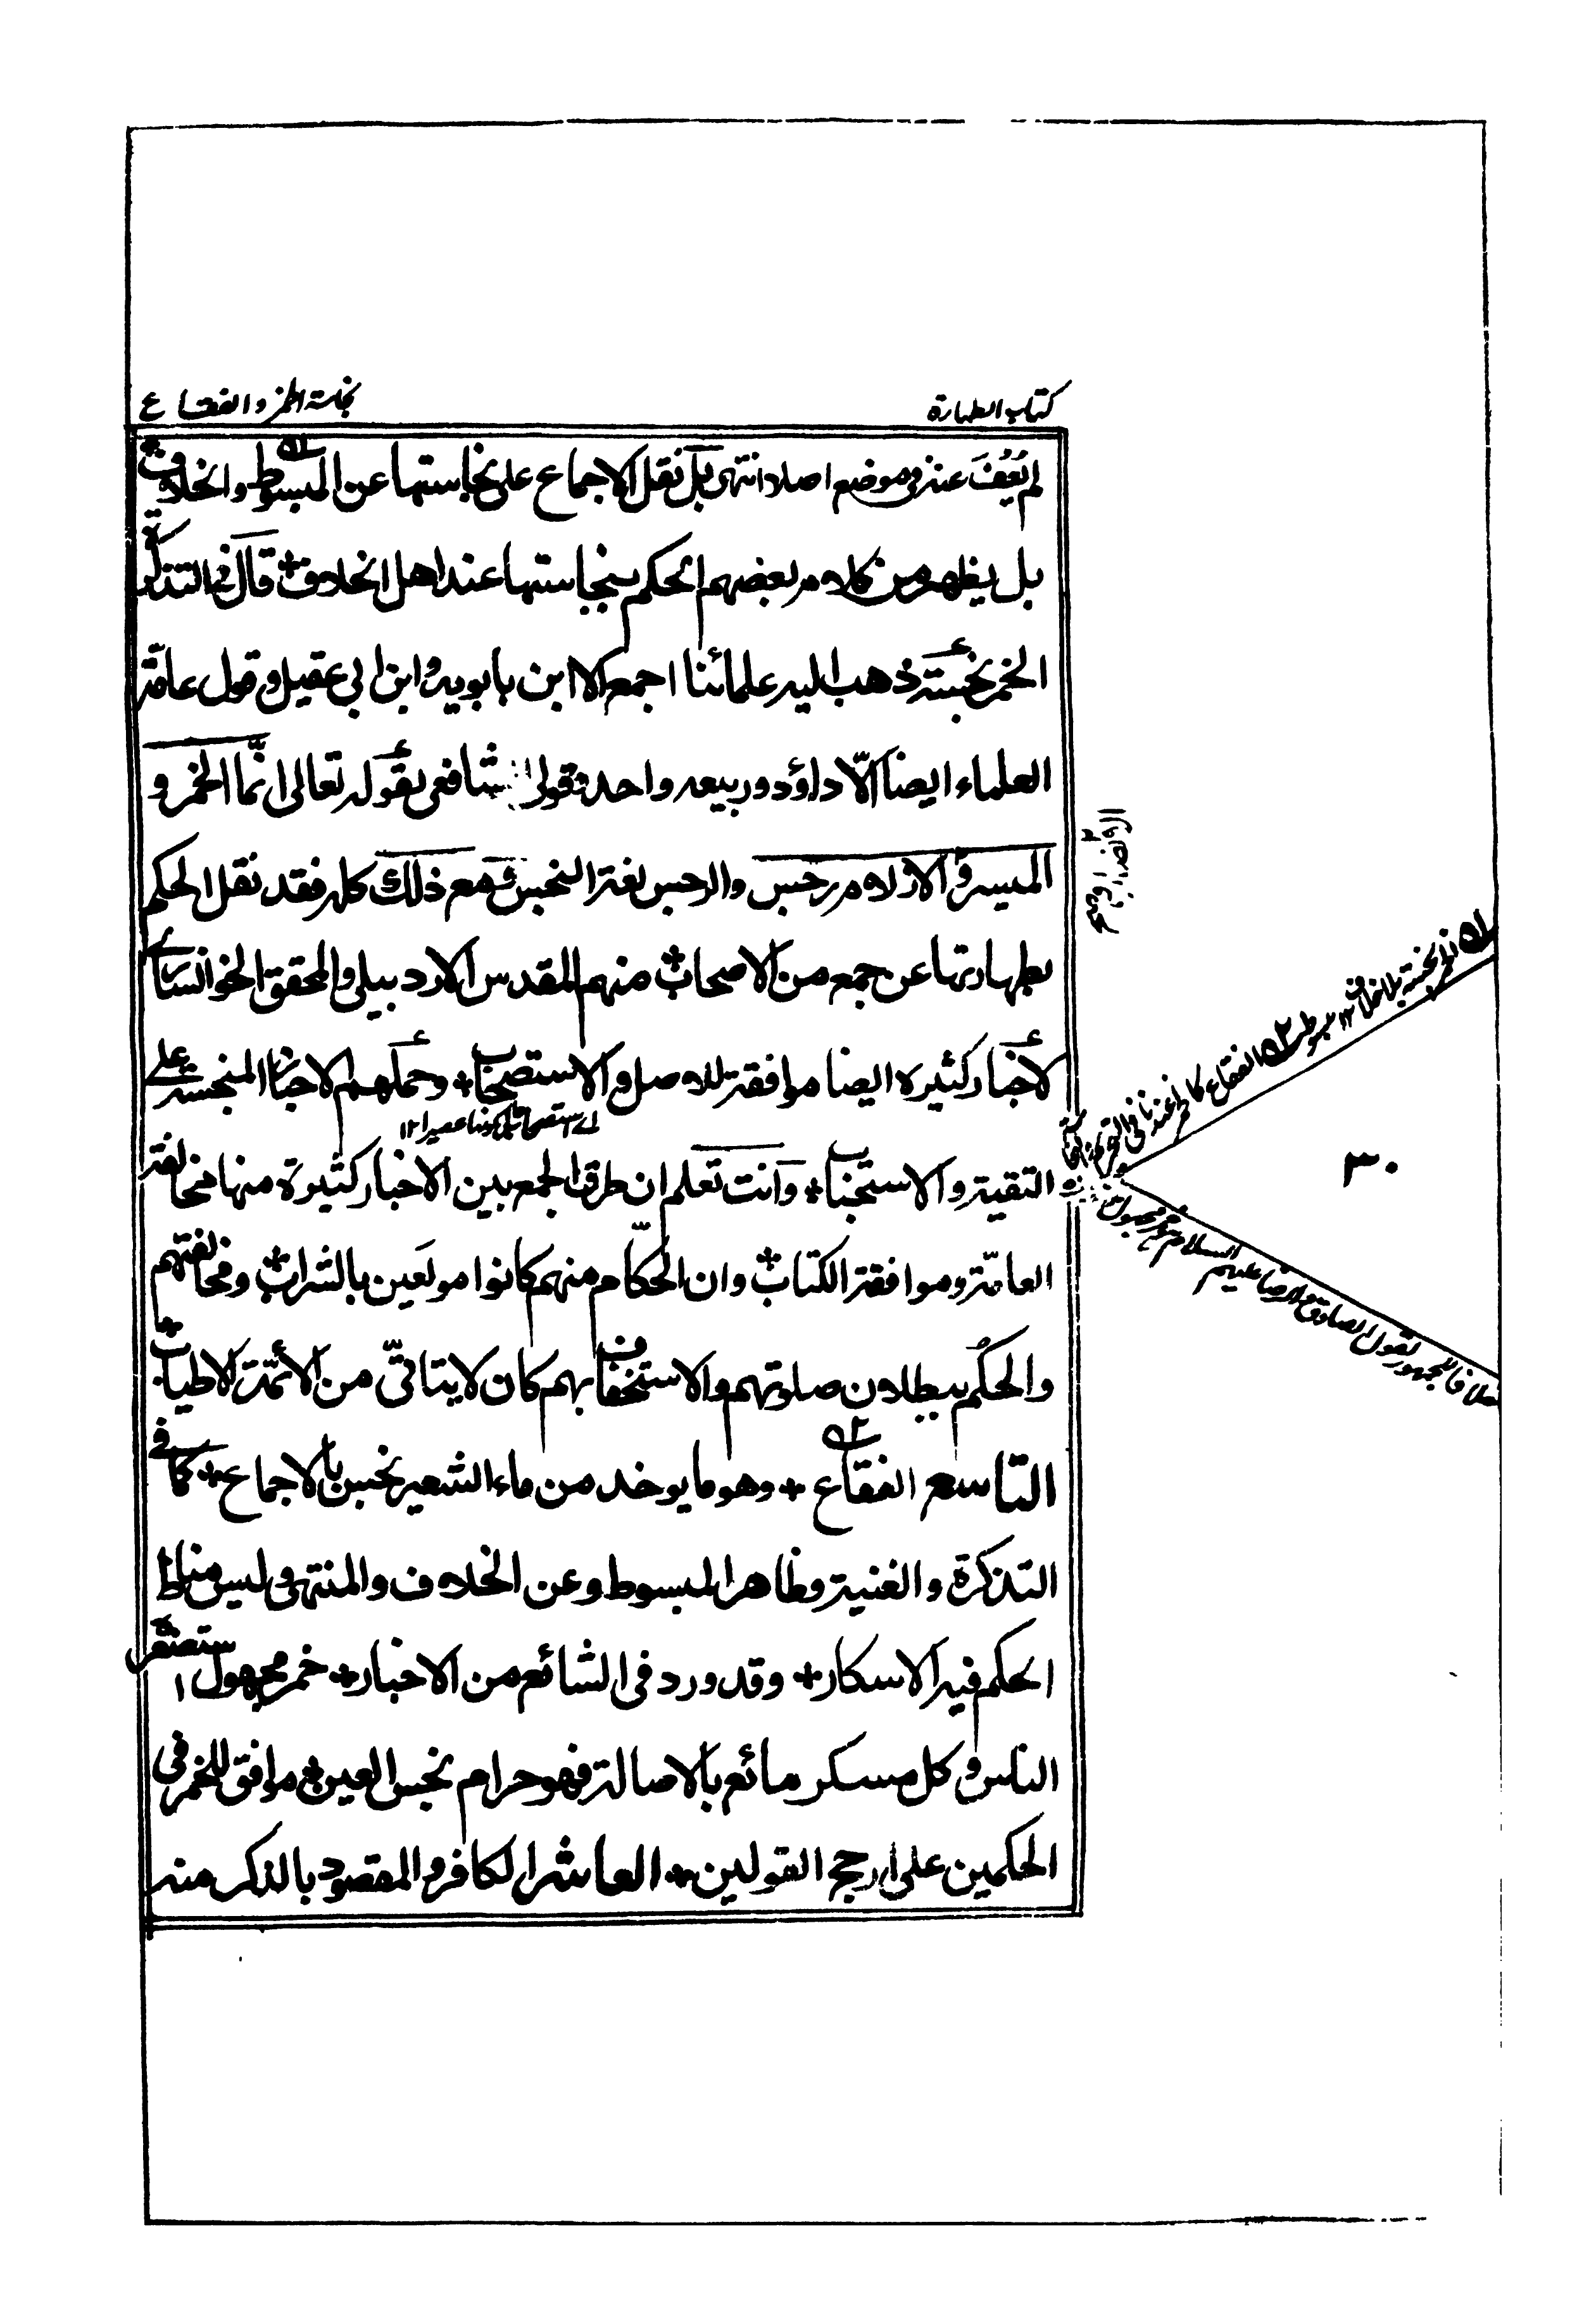 كتاب الطهارة
نجاسة الخمر و الفقاع
لم يُعْفَ عنه في موضع اصلا انتهى بل نقل الاجماع على نجاستها عن المبسوط والخلاف
بل يظهر من كلام بعضهم الحكم بنجاستها عند اهل الخلاف قال في التذكرة
الخمر نجسة ذهب اليه علمائنا اجمع الا ابن بابويه وابن ابي عقيل وقول عامة
العلماء ايضا الّا داؤد وربيعه واحد قولي الشافعى لقوله تعالى انّما الخمر و
الميسر و الازلام رجس والرجس لغة النجس ومع ذلك كله فقد نقل الحكم
بطهارتها عن جمع من الاصحاب منهم المقدس الاردبيلى والمحقق الخوانسارى
لأخبار كثيرة ايضا موافقة للاصل والاستصحاب وحملهم الاخبار المنجسة على
التقية والاستحباب وانت تعلم ان طرق الجمع بين الاخبار كثيرة منها مخالفة
العامّة وموافقة الكتاب وان الحكّام منهم كانوا مولَعين بالشراب ومخالفتهم
والحكم ببطلان صلوتهم والاستخفاف بهم كان لا يتاقّى من الأئمّة الاطياب
التاسع الفقاع وهو ما يوخد من ماء الشعير نجس بالاجماع كما فى
التذكرة والغنية وظاهر المبسوط وعن الخلاف والمنتهى وليس مناط
الحكم فيه الاسكار وقد ورد فى الشائع من الاخبار خمر مجهول استصغره
الناس وكل مسكر مائع بالاصالة فهو حرام نجس العين موافق للخمر فى
الحكمين على ارجح القولين العاشر الكافر والمقصود بالذكر منه
الخمر نجسة بلا خلاف ١٢ مبسوط
الفقاع كالخمر عندنا فى التحريم
خلافا للجمهور لقول الصادق والرضا عليهم
السلام هو خمر مجهول
٣٠